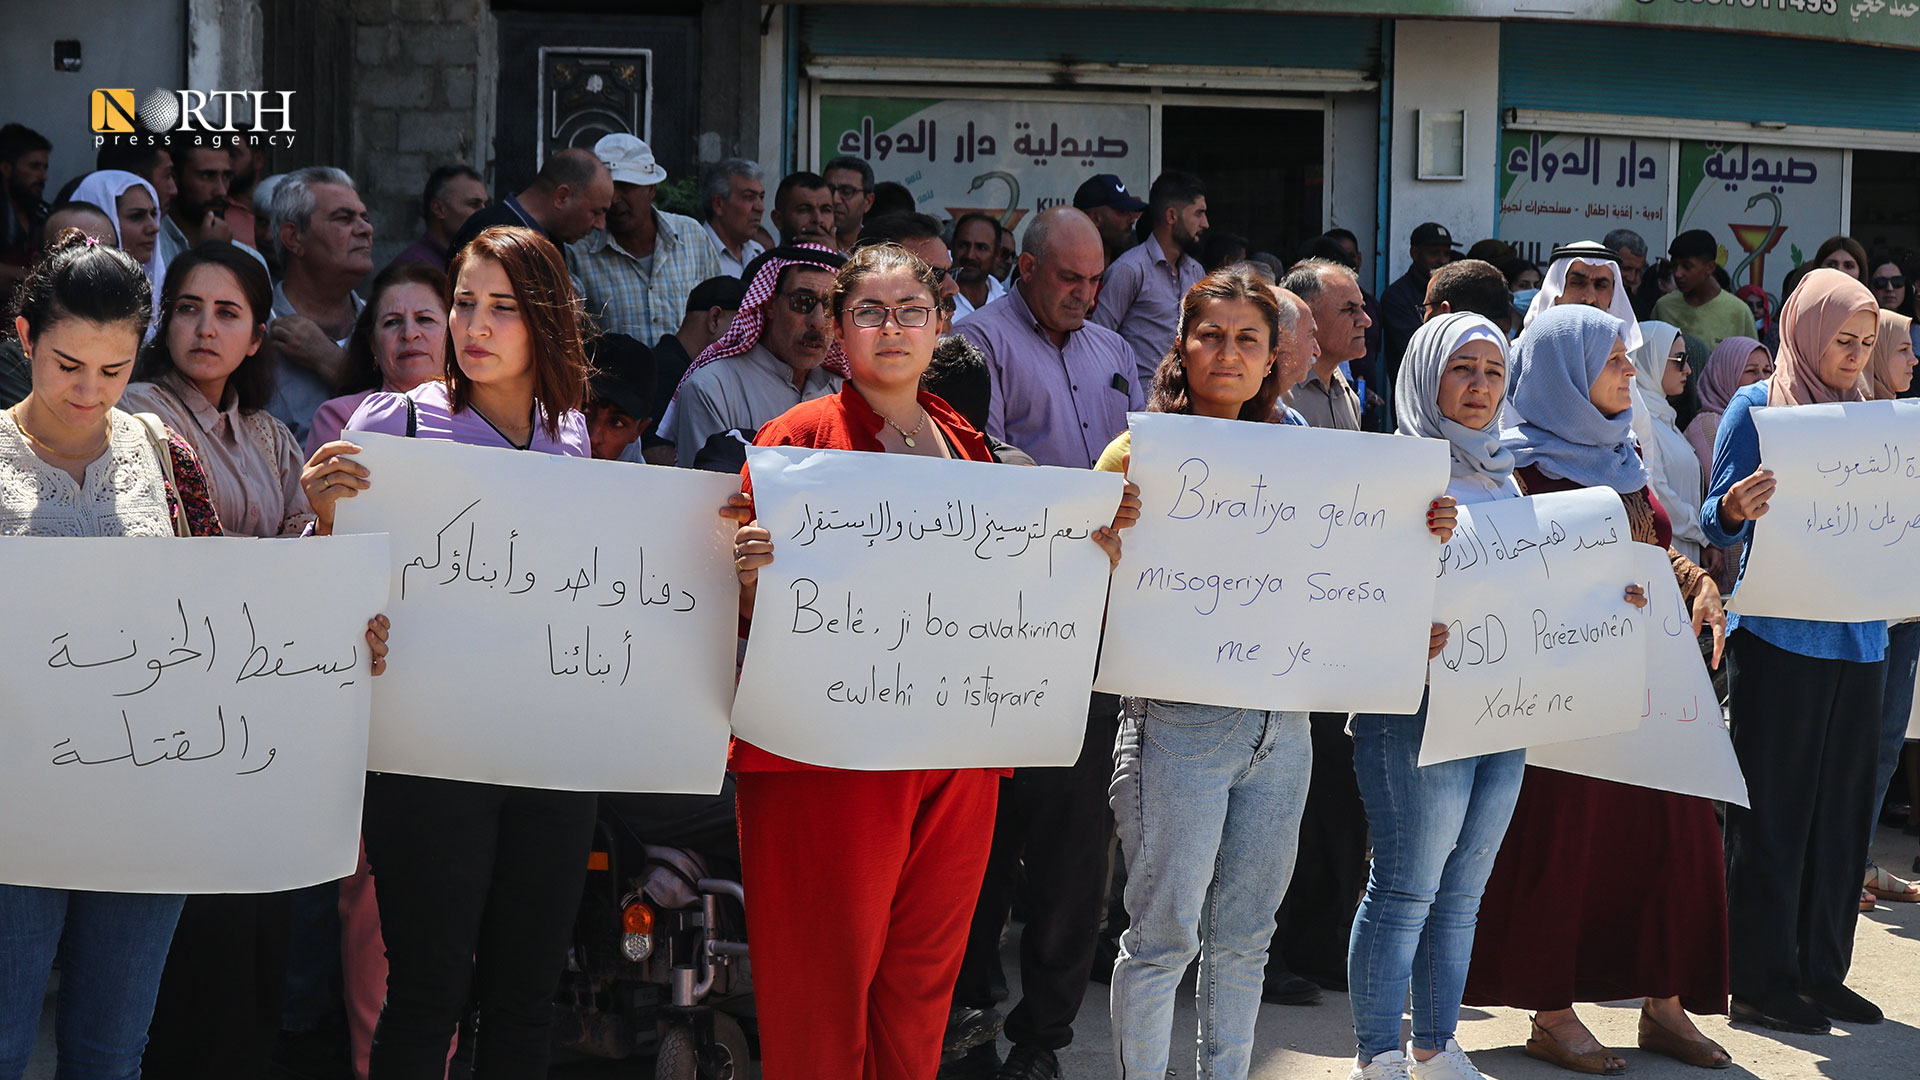 NORTH
press agency
صيدلية دار الدواء
صيدلية دار الدواء
أدوية - اغذية اطفال - مستحضرات تجميل
يسقط الخونة
والقتلة
دمنا واحد وأبناؤكم
أبنائنا
نعم لترسيخ الأمن والإستقرار
Belê, ji bo avakirina
ewlehî û îstiqrarê
Biratiya gelan
misogeriya Soreşa
me ye....
قسد هم حماة الأرض
QSD Parêzvanên
Xakê ne
الشعوب
على الأعداء